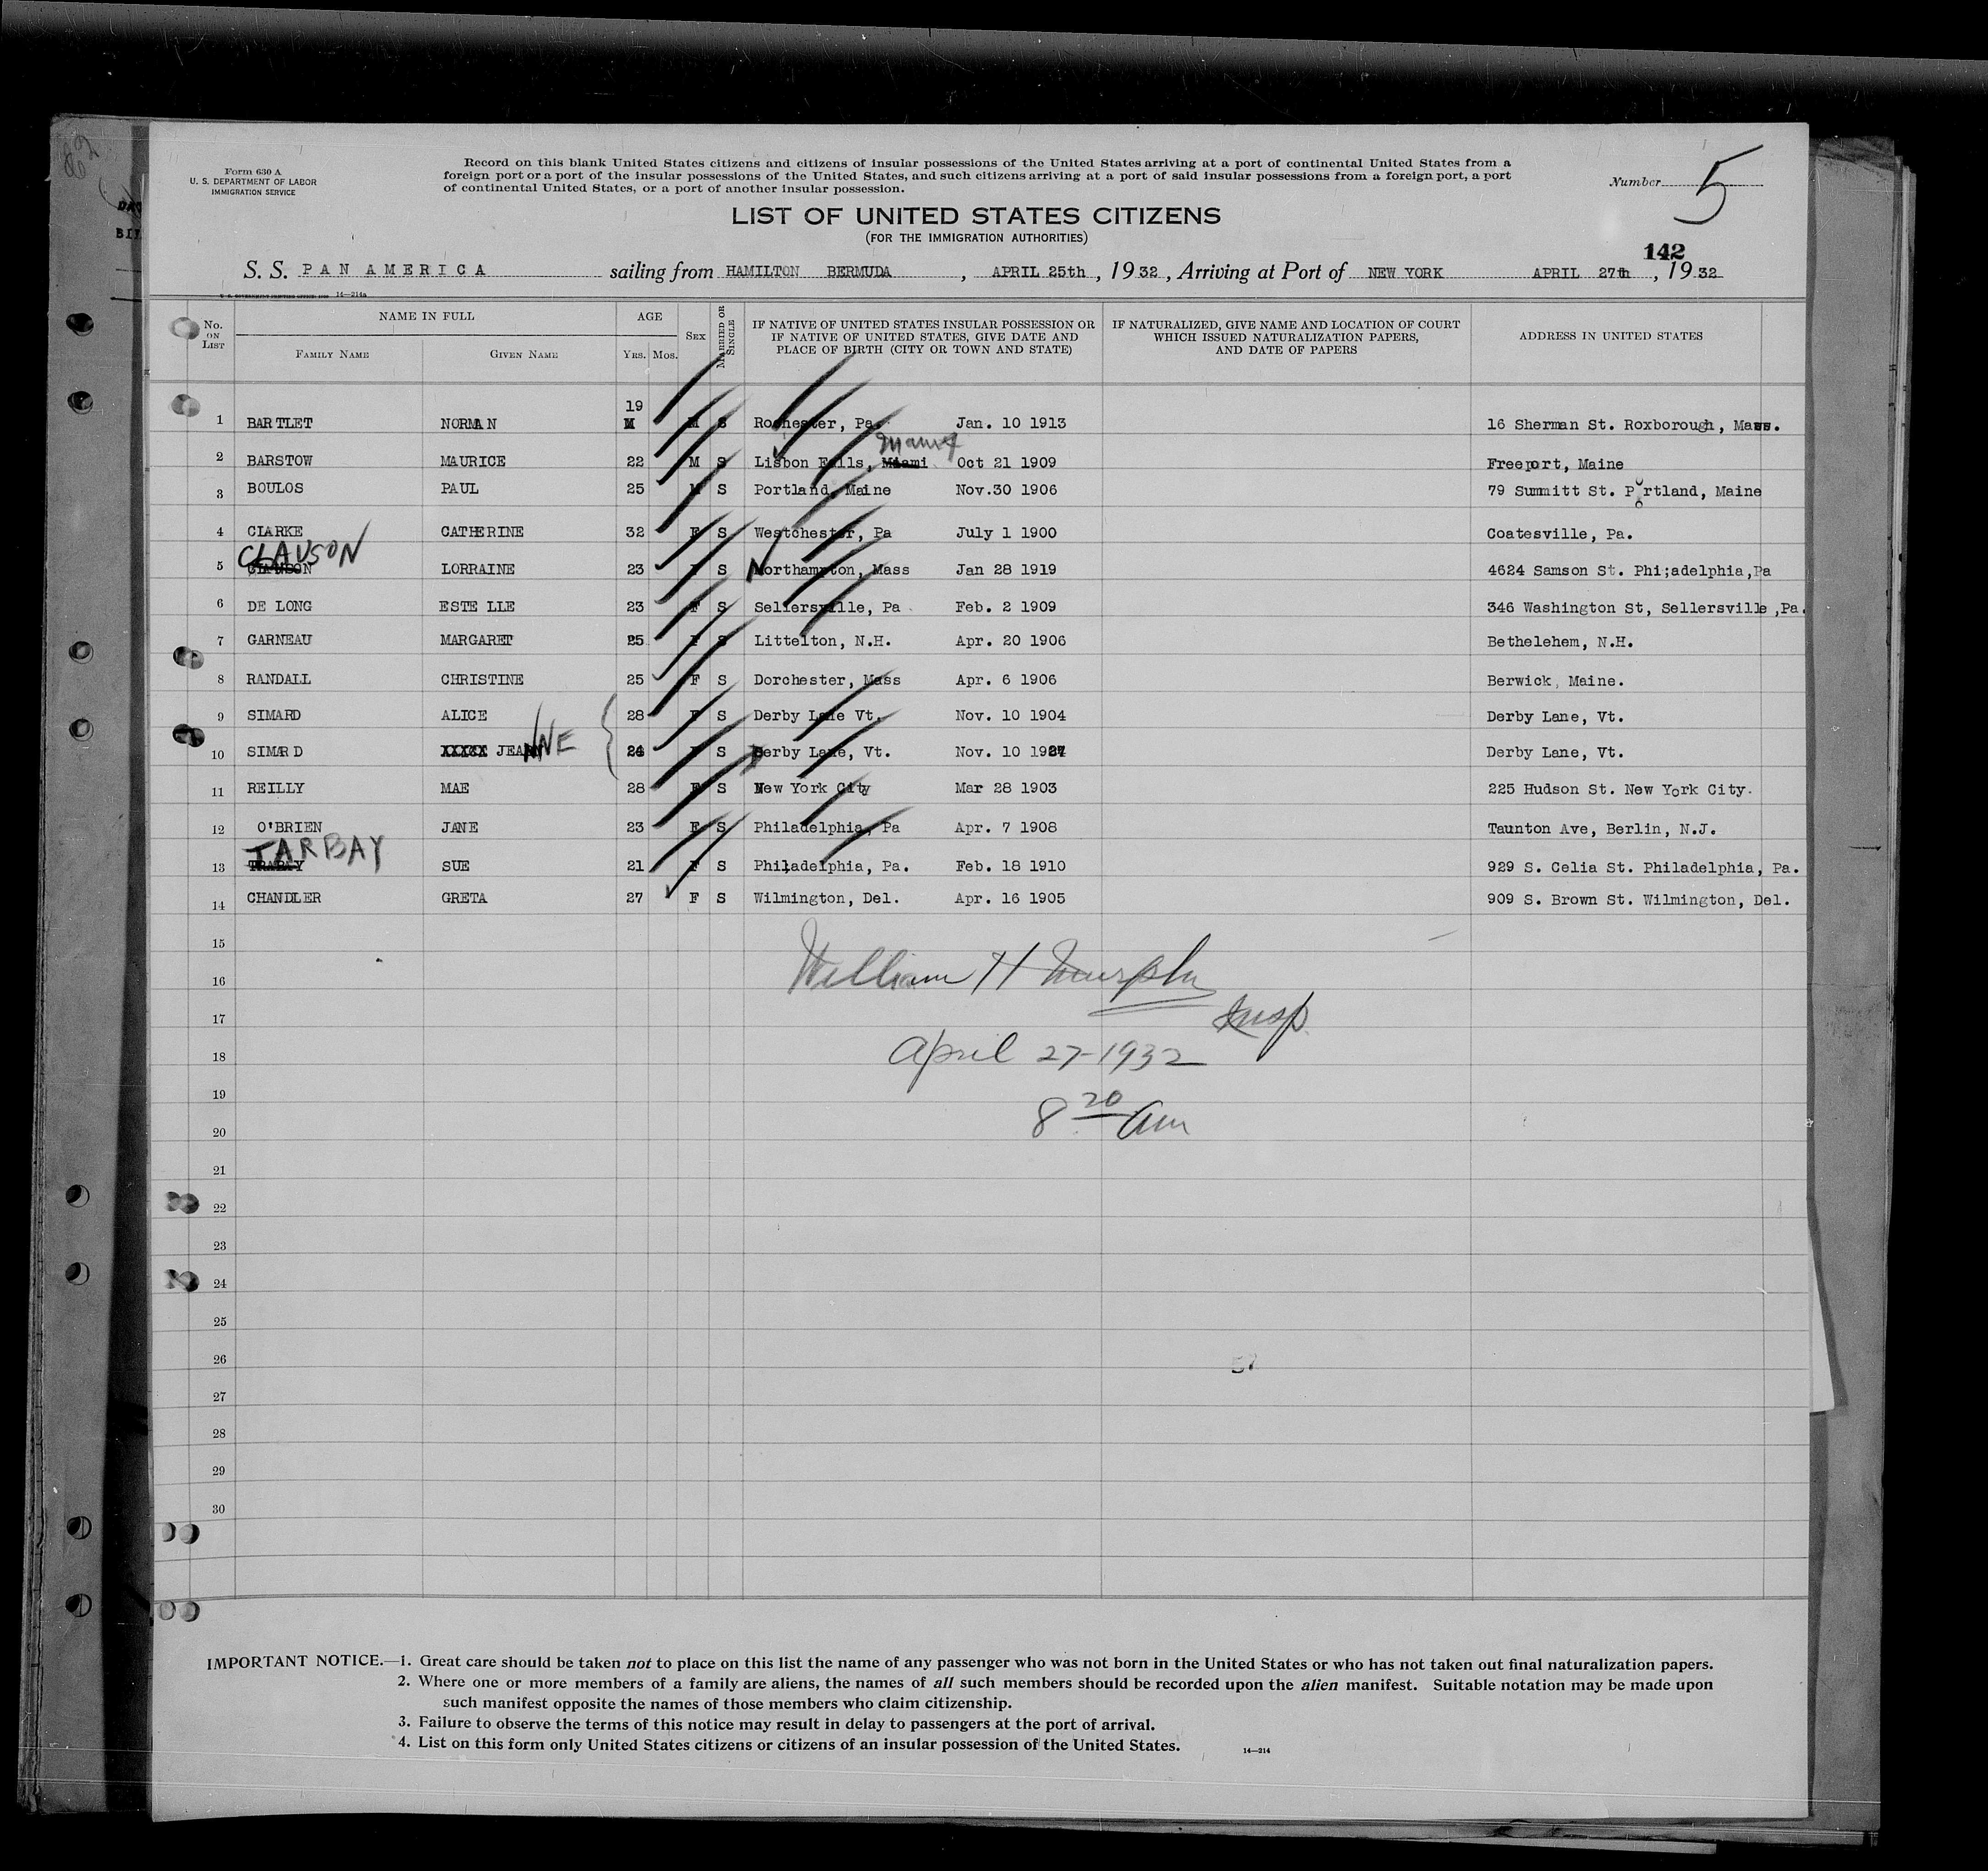 Form 630 A
U. S. DEPARTMENT OF LABOR
IMMIGRATION SERVICE
Record on this blank United States citizens and citizens of insular possessions of the United States arriving at a port of continental United States from a
foreign port or a port of the insular possessions of the United States, and such citizens arriving at a port of said insular possessions from a foreign port, a port
of continental United States, or a port of another insular possession.
Number 5
LIST OF UNITED STATES CITIZENS
(FOR THE IMMIGRATION AUTHORITIES)
142
S. S. PAN AMERICA sailing from HAMILTON BERMUDA, APRIL 25th, 1932, Arriving at Port of NEW YORK APRIL 27th, 1932
14—214a
No. ON LIST
NAME IN FULL
FAMILY NAME
GIVEN NAME
AGE
YRS. MOS.
SEX
MARRIED OR SINGLE
IF NATIVE OF UNITED STATES INSULAR POSSESSION OR
IF NATIVE OF UNITED STATES, GIVE DATE AND
PLACE OF BIRTH (CITY OR TOWN AND STATE)
IF NATURALIZED, GIVE NAME AND LOCATION OF COURT
WHICH ISSUED NATURALIZATION PAPERS,
AND DATE OF PAPERS
ADDRESS IN UNITED STATES
1 BARTLET NORMAN 19 M S Rochester, Pa. Jan. 10 1913 16 Sherman St. Roxborough, Mass.
Maine
2 BARSTOW MAURICE 22 M S Lisbon Falls, Miami Oct 21 1909 Freeport, Maine
3 BOULOS PAUL 25 M S Portland, Maine Nov.30 1906 79 Summitt St. Portland, Maine
4 CLARKE CATHERINE 32 F S Westchester, Pa July 1 1900 Coatesville, Pa.
CLAUSON
5 LORRAINE 23 F S Northampton, Mass Jan 28 1919 4624 Samson St. Phi;adelphia,Pa
6 DE LONG ESTELLE 23 F S Sellersville, Pa. Feb. 2 1909 346 Washington St, Sellersville,Pa.
7 GARNEAU MARGARET 25 F S Littelton, N.H. Apr. 20 1906 Bethelehem, N.H.
8 RANDALL CHRISTINE 25 F S Dorchester, Mass Apr. 6 1906 Berwick, Maine.
9 SIMARD ALICE 28 F S Derby Lane Vt. Nov. 10 1904 Derby Lane, Vt.
10 SIMARD XXXXX JEANNE F S Derby Lane, Vt. Nov. 10 Derby Lane, Vt.
11 REILLY MAE 28 F S New York City Mar 28 1903 225 Hudson St. New York City.
12 O'BRIEN JANE 23 F S Philadelphia, Pa Apr. 7 1908 Taunton Ave, Berlin, N.J.
TARBAY
13 SUE 21 F S Philadelphia, Pa. Feb. 18 1910 929 S. Celia St. Philadelphia, Pa.
14 CHANDLER GRETA 27 F S Wilmington, Del. Apr. 16 1905 909 S. Brown St. Wilmington, Del.
15
16 William H Murphy
17 Insp.
18 April 27-1932
19
20 8 20 am
21
22
23
24
25
26
27
28
29
30
IMPORTANT NOTICE.—1. Great care should be taken not to place on this list the name of any passenger who was not born in the United States or who has not taken out final naturalization papers.
2. Where one or more members of a family are aliens, the names of all such members should be recorded upon the alien manifest. Suitable notation may be made upon
such manifest opposite the names of those members who claim citizenship.
3. Failure to observe the terms of this notice may result in delay to passengers at the port of arrival.
4. List on this form only United States citizens or citizens of an insular possession of the United States.
14—214